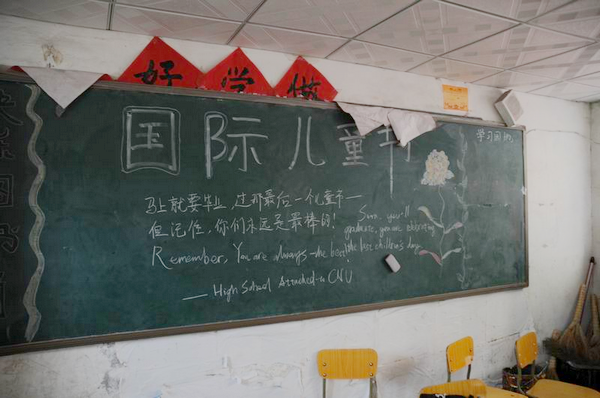 好 学
国际儿童节
学习园地
马上就要毕业,过那最后一个儿童节——
但记住,你们永远是最棒的!
Remember, You are always the best!
— High School Attached to CNU
Soon, you'll
graduate, you are celebrating
the last children's day.